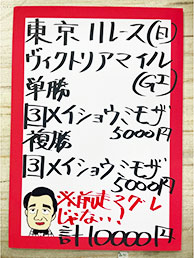 東京11レース(日)
ヴィクトリアマイル
単勝 (GⅠ)
③メイショウミモザ
複勝 5000円
③メイショウミモザ
5000円
※前走マグレ
じゃない!
計10000円